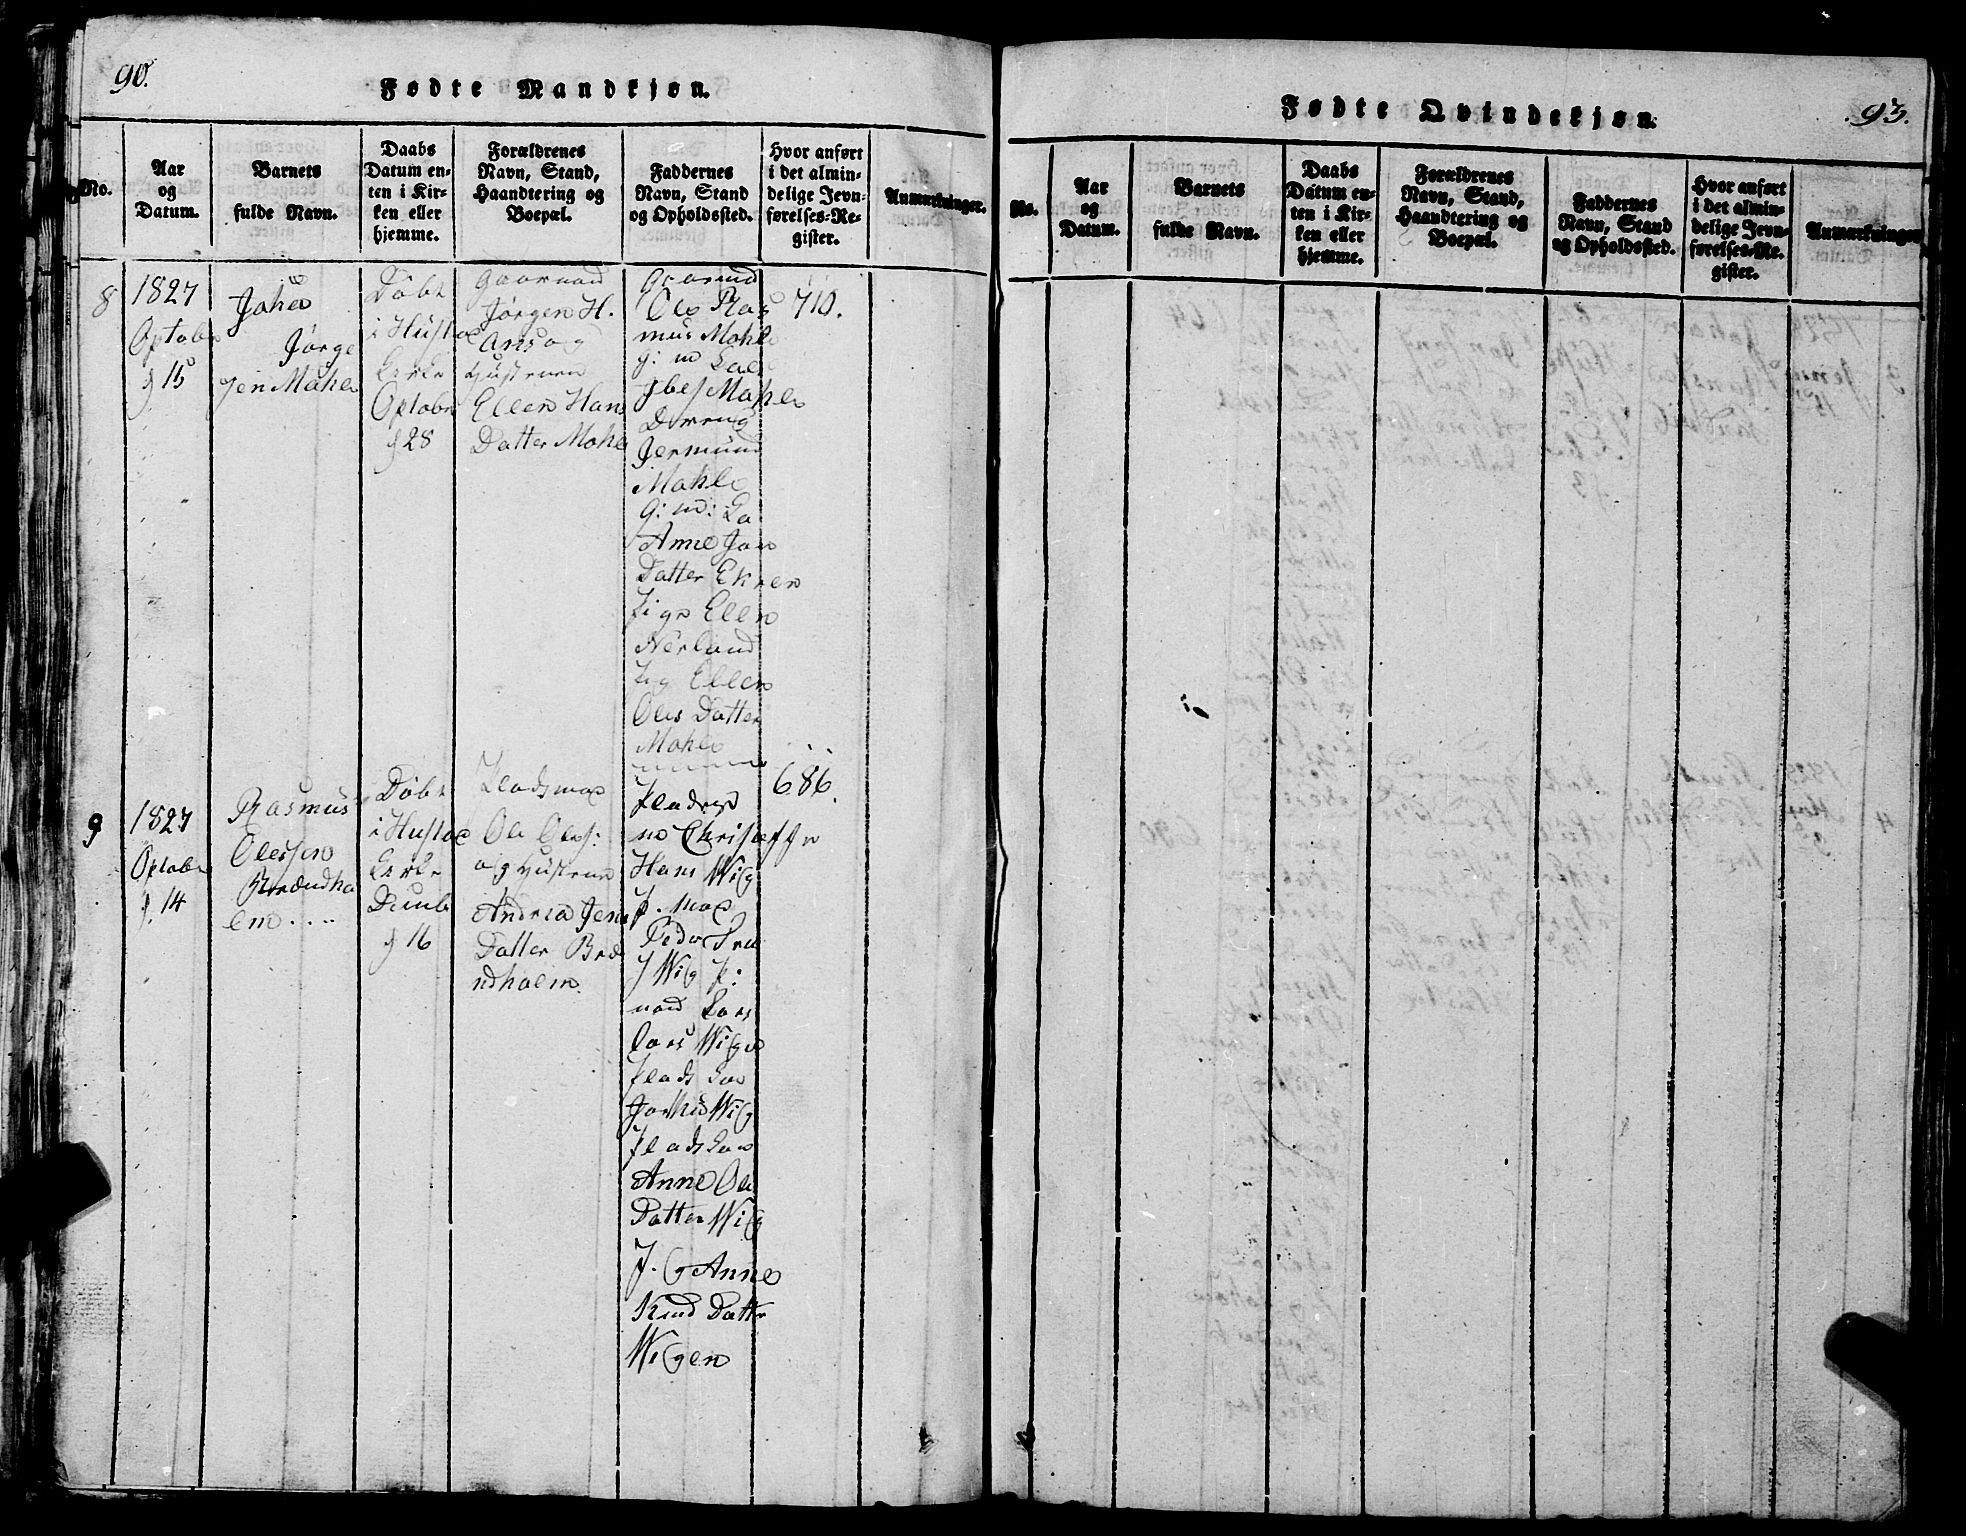 90.
Fødte Mandkjøn.
No.
Aar
og
Datum.
Barnets
fulde Navn.
Daabs
Datum en-
ten i Kir-
ken eller
hjemme.
Forældrenes
Navn, Stand,
Haandtering og
Boepæl.
Faddernes
Navn, Stand
og Opholdssted.
Hvor anført
i det almin-
delige Jevn-
førelses-Re-
gister.
Anmærkninger.
8
1827
Octobr
15
Joha
Jørge
sen Mahle
Döbt
i Hustad
Kirke
Octobr
28
Gaarmand
Jørgen H.
Ans og
Hustruen
Ellen Hans
Datter Mahle
Ole Ras
mus Mahle
Mahle
Dreng
Jermund
Mahle
Anne Jon
Datter Ekren
Pige Ellen
Nerland
Pig Ellen
Oles Datter
Mahle
710.
9
1827
Octobr
14
Rasmus
Olessen
Brændho
lm
Döbt
i Hustad
Kirke
16
Pladsman
Ole Oles:
og Hustrue
Andrea Jens
Datter Bræ
ndholm
Christoffer
Hans Wig
P. man
Peder
Wig P:
mand Lars
Lars Wigen
Plads
Wig
Plads
Anne Ole
Datter Wig
P. Anne
Knud Datter
Wigen
686.
Fødte Qvindekjøn.
93.
No.
Aar
og
Datum.
Barnets
fulde Navn.
Daabs
Datum en-
ten i Kir-
ken eller
hjemme.
Forældrenes
Navn, Stand,
Haandtering og
Boepæl.
Faddernes
Navn, Stand
og Opholdssted.
Hvor anført
i det almin-
delige Jevn-
førelses-Re-
gister.
Anmærkninger